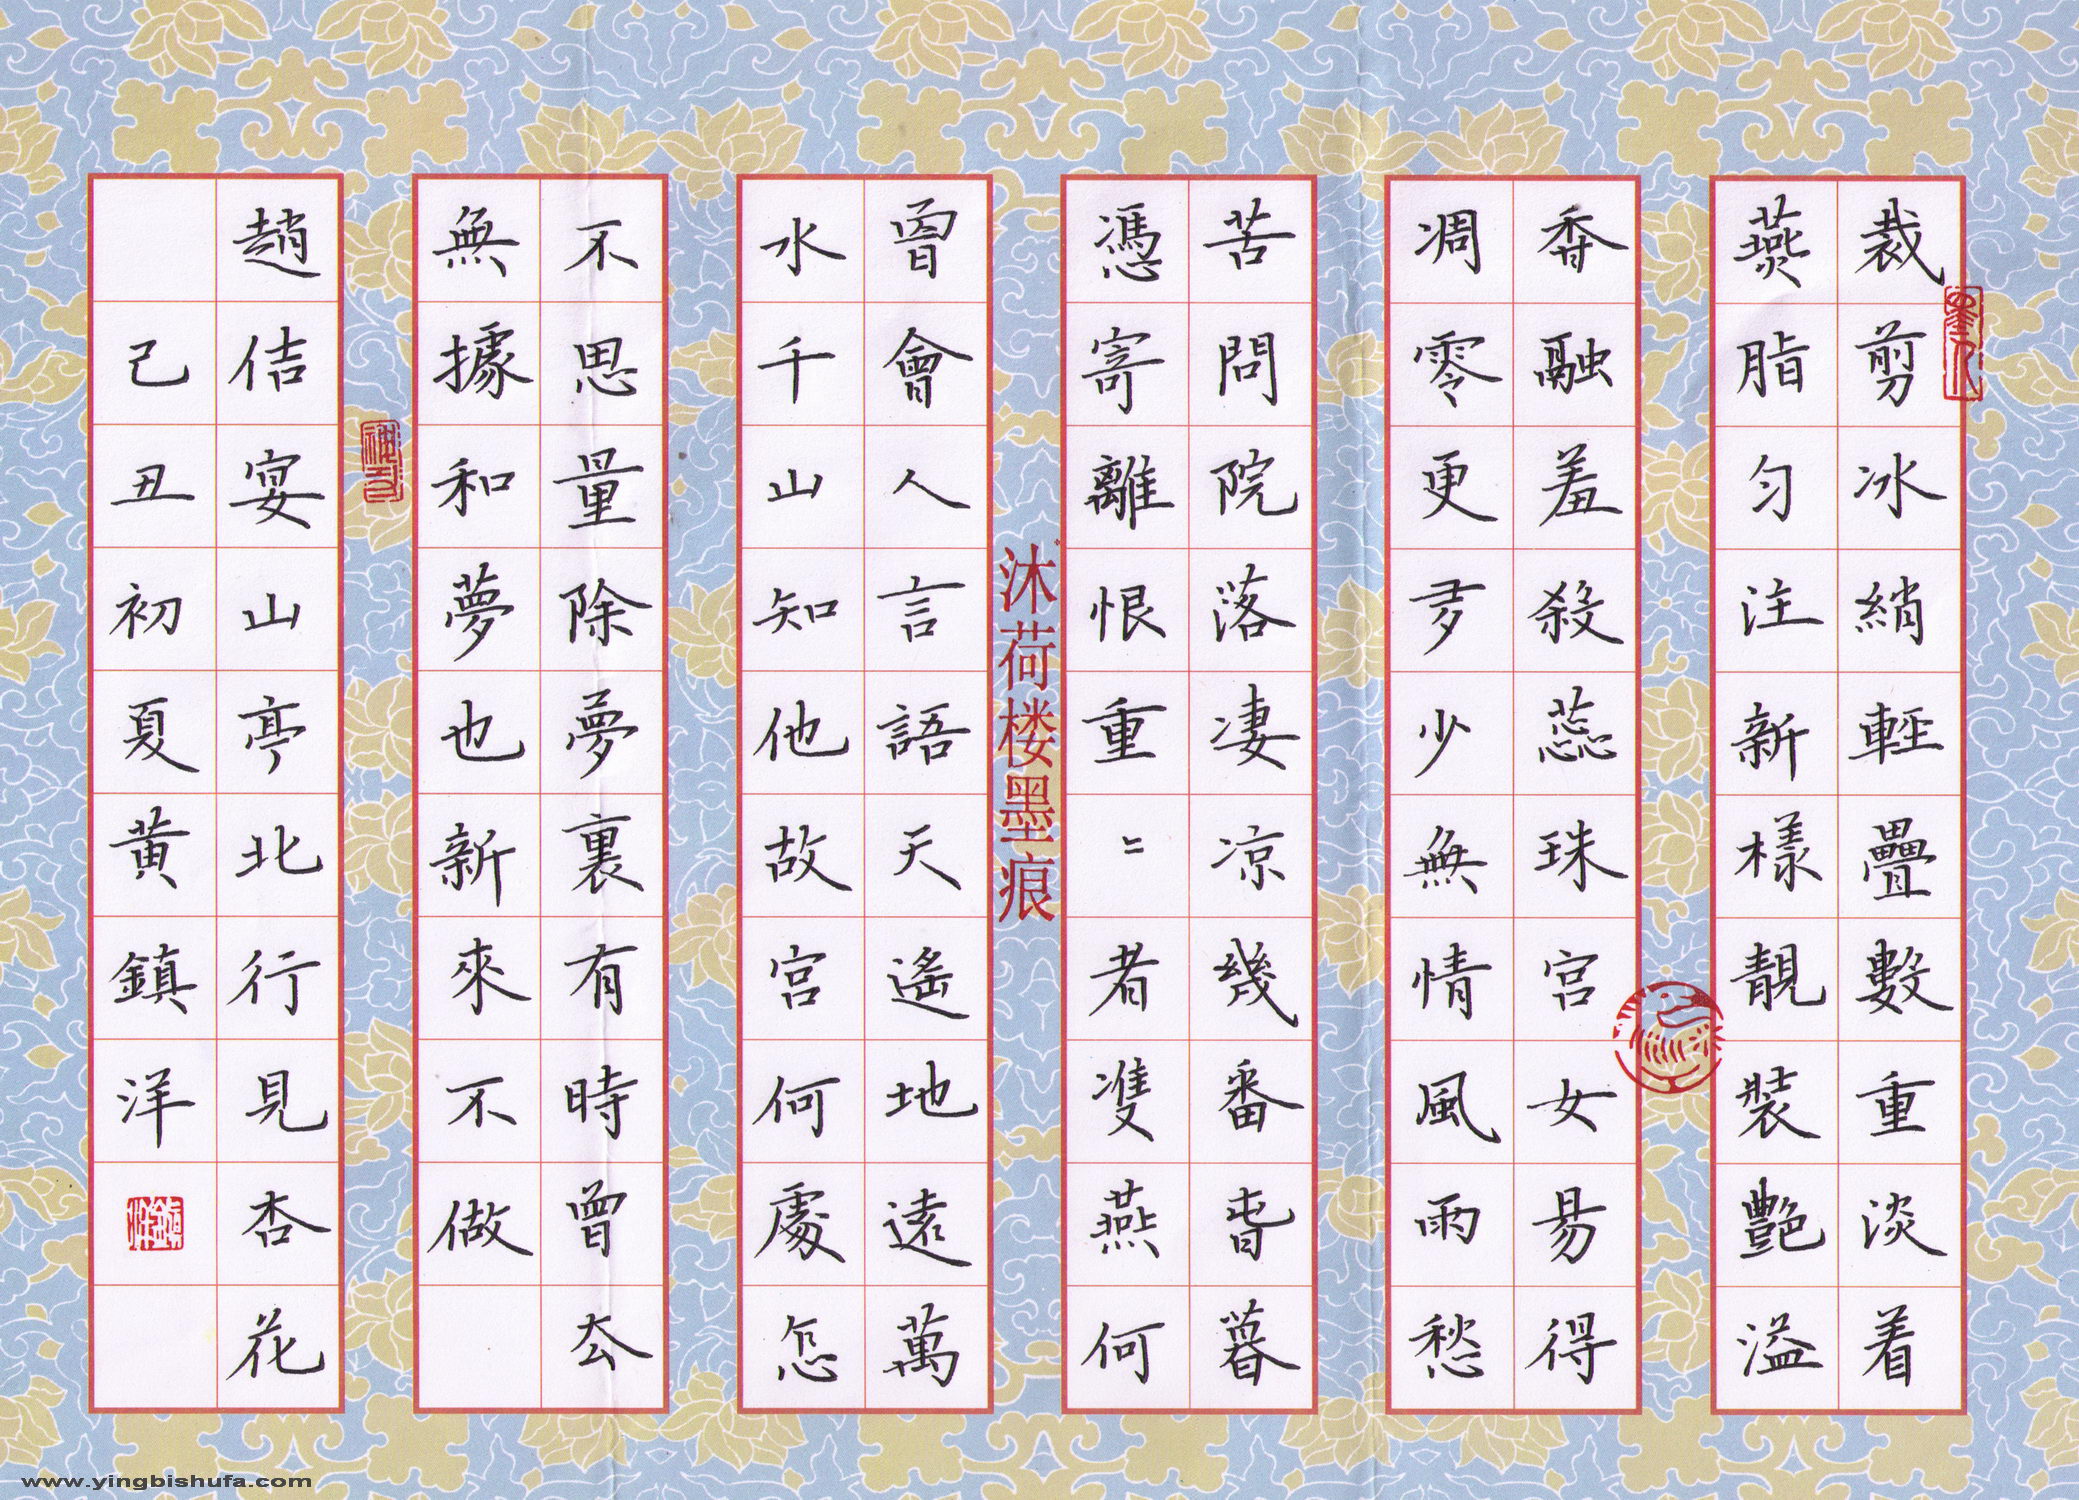 裁剪冰綃輕疊數重淡着
燕脂匀注新樣靚裝艷溢
香融羞殺蕊珠宮女易得
凋零更多少無情風雨愁
苦問院落凄凉幾番春暮
憑寄離恨重〻者雙燕何
曾會人言語天遙地遠萬
水千山知他故宮何處怎
不思量除夢裏有時曾去
無據和夢也新來不做
趙佶宴山亭北行見杏花
己丑初夏黄鎮洋
鎮洋
沐荷楼墨痕
www.yingbishufa.com